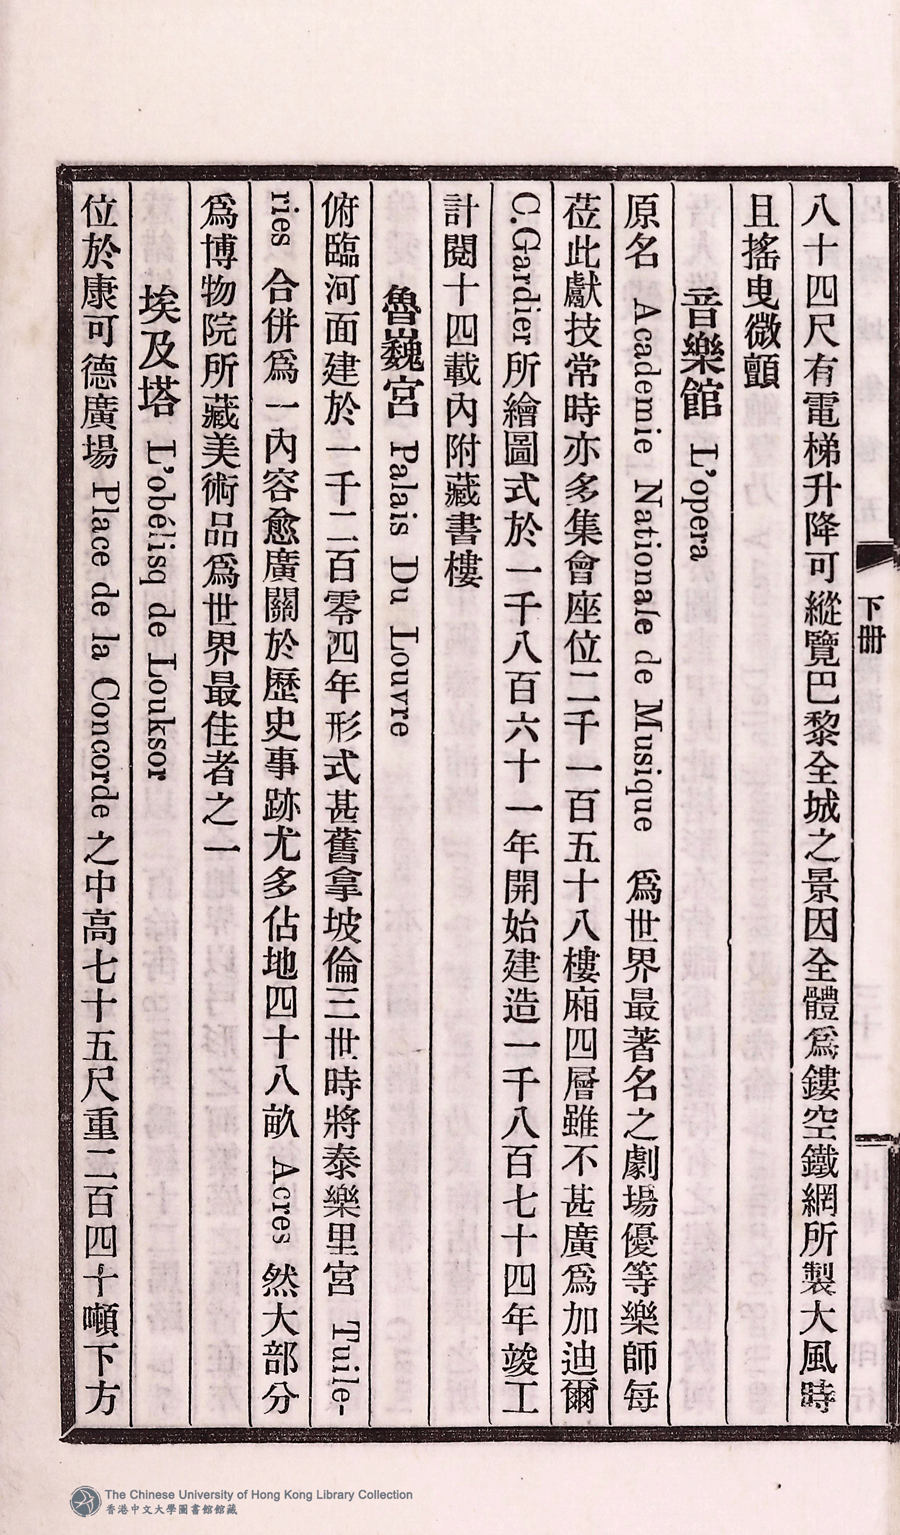 下册
八十四尺有電梯升降可縱覽巴黎全城之景因全體爲鏤空鐵網所製大風時
且搖曳微顫
音樂館 L'opera
原名 Academie Nationale de Musique 爲世界最著名之劇場優等樂師每
莅此獻技常時亦多集會座位二千一百五十八樓廂四層雖不甚廣爲加迪爾
C.Gardier所繪圖式於一千八百六十一年開始建造一千八百七十四年竣工
計閱十四載內附藏書樓
魯巍宮 Palais Du Louvre
俯臨河面建於一千二百零四年形式甚舊拿坡倫三世時將泰樂里宮 Tuile-
ries 合併爲一內容愈廣關於歷史事跡尤多佔地四十八畝 Acres 然大部分
爲博物院所藏美術品爲世界最佳者之一
埃及塔 L'obélisq de Louksor
位於康可德廣場 Place de la Concorde 之中高七十五尺重二百四十噸下方
The Chinese University of Hong Kong Library Collection
香港中文大學圖書館館藏